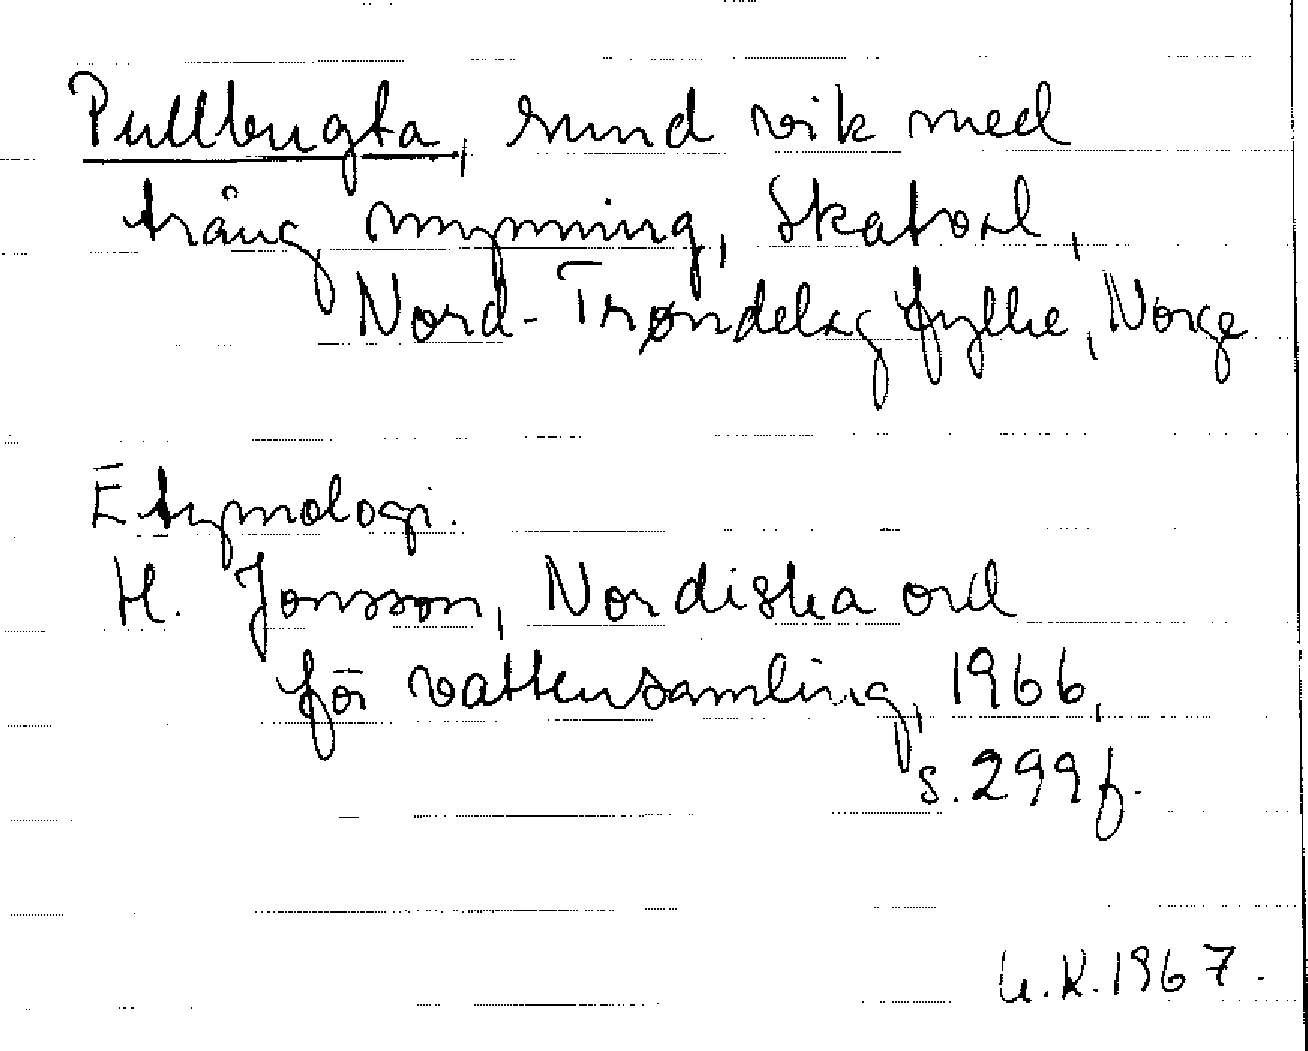 Pullbugta, rund vik med
trång mynning, Skatval,
Nord-Trøndelag fylke, Norge
Etymologi.
H. Jonsson, Nordiska ord
för vattensamling, 1966,
s. 299 f.
U.K. 1967.